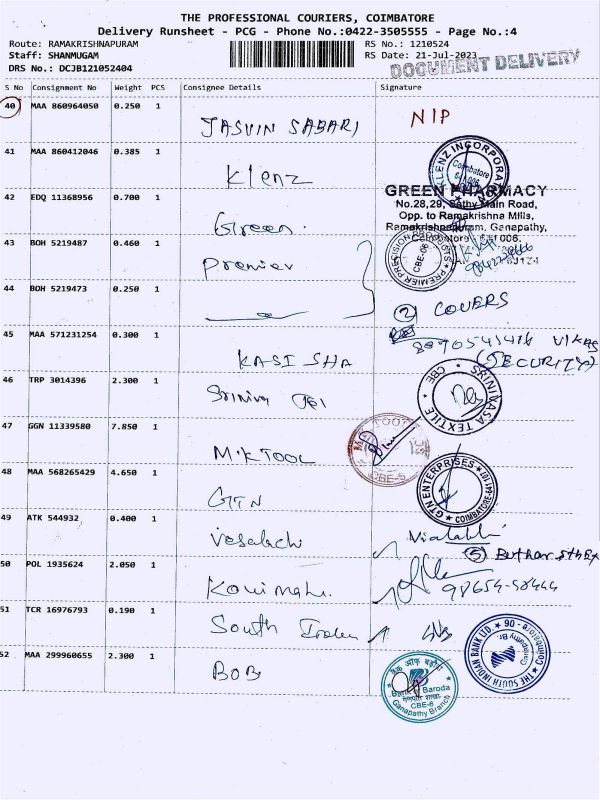 THE PROFESSIONAL COURIERS, COIMBATORE
Delivery Runsheet - PCG - Phone No.:0422-3505555 - Page No.:4
Route: RAMAKRISHNAPURAM RS No.: 1210524
Staff: SHANMUGAM RS Date: 21-Jul-2023
DRS No.: DCJB121052404
DOCUMENT DELIVERY
S No Consignment No Weight PCS Consignee Details Signature
40 MAA 860964050 0.250 1 JASVIN SABARI NIP
41 MAA 860412046 0.385 1 Klenz
KLENZ INCORPORA
Coimbatore
42 EDQ 11368956 0.700 1 Green.
GREEN PHARMACY
No.28,29, Sathy Main Road,
Opp. to Ramakrishna Mills,
Ramakrishnapuram, Ganapathy,
Coimbatore 641 006.
43 BOH 5219487 0.460 1 Premier
PREMIER PRECISION
CBE-06
44 BOH 5219473 0.250 1
2 COVERS
45 MAA 571231254 0.300 1 KASI SHA
(SECURITY)
46 TRP 3014396 2.300 1
SRINIVASA TEXTILE
CBE
47 GGN 11339580 7.850 1 MIKTOOL
CBE-6
48 MAA 568265429 4.650 1 GTN
GTN ENTERPRISES
COIMBATORE-641107
49 ATK 544932 0.400 1
50 POL 1935624 2.050 1
51 TCR 16976793 0.190 1 South Indian
THE SOUTH INDIAN BANK LTD.
Coimbatore - 06
52 MAA 299960655 2.300 1 BOB
Bank of Baroda
Ganapathy Branch
CBE-6